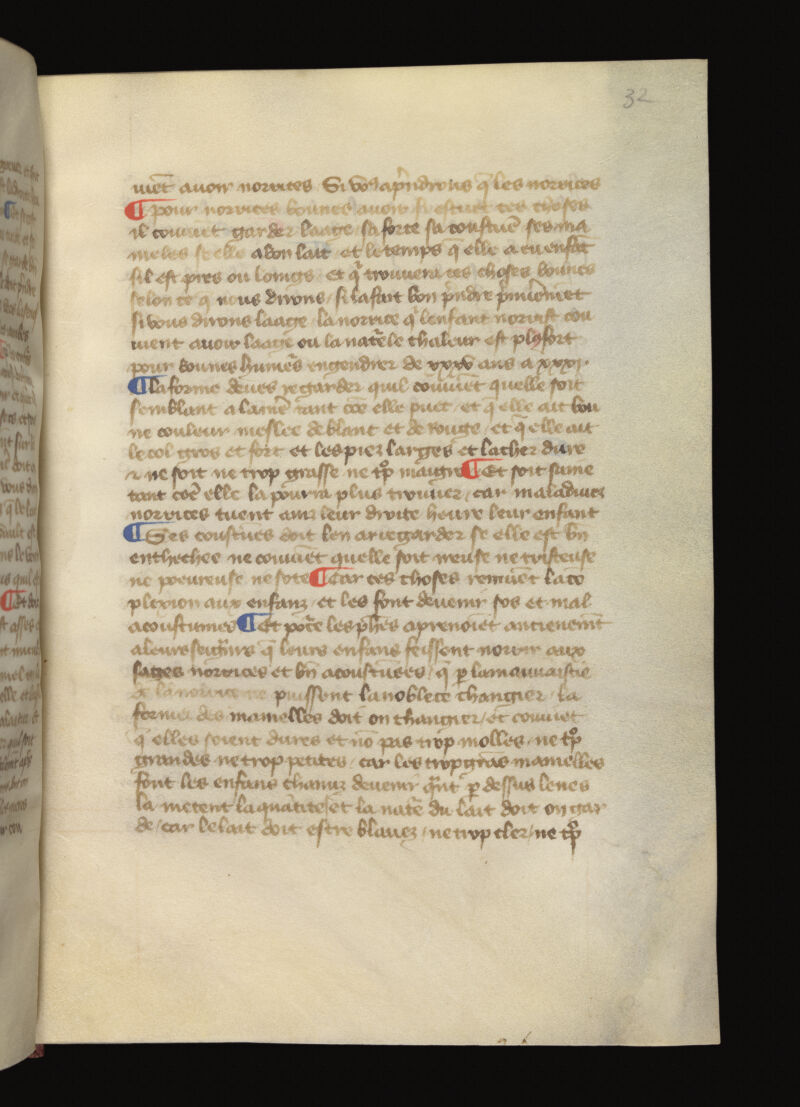 32
uiēt auoir norrices Si vo9 apr̄ndrons q̄ les norrices
¶ pour norrices bonnes auoir ces choses
il couuiēt garder laage sa forte sa coustūe ses ma
meles se elle a bon lait et le temps q̄ elle a eu enfāt
sil est pres ou loings et q̄ trouuera ces choses bonnes
selon ce q̄ nous dirons si la fait bon p̄ndre
si vous dirons laage la norrice q̄ lenfant norrist cou
uient auoir laage ou la nat̄ele chaleur est pl9 fort
pour bonnes hume᷒s engendrer de xxv ans a xxxv
¶ la forme deues regarder quil cōuiēt quelle soit
semblant a la mē tant cōe elle puet et q̄ elle ait bou
ne couleur meslee de blanc et de rouge et q̄ elle ait
le col gros et fort et les piez larges et la cher dure
⁊ ne soit ne trop grasse ne tp̄o maigre ¶ Et soit saine
tant cōe elle la pourra plus trouuer car maladiues
norrices tuent ainz leur droite heure leur enfant
¶ Ses coustūes doit len aregarder se elle est bn̄
entechee ne couuiēt quelle soit ireuse ne tristeuse
ne poeureuse ne sote ¶ Car ces choses remuēt la cō
plexion aux enfanz et les font deuenir sos et mal
acoustumes ¶ Et pōr ce les ph̄es aprenoiēt anciēnemēt
a leurs seign̄rs q̄ leurs enfans feissent norrir aux
sages norrices et bn̄ acoustūees q̄ p̄ la mauuaistie
de la norrice ne puissent la noblece changier la
forme des mamelles doit on changier et couuiēt
q̄ elles soient dures et nō pas trop molles ne tp̄o
grandes ne trop petites car les trop grās mamelles
font les enfans chamuz deuenir q̄nt p̄ dessus le nes
la metent la quātite et la nat̄e du lait doit on gar
de car le lait doit estre blauez ne trop cler ne tp̄o